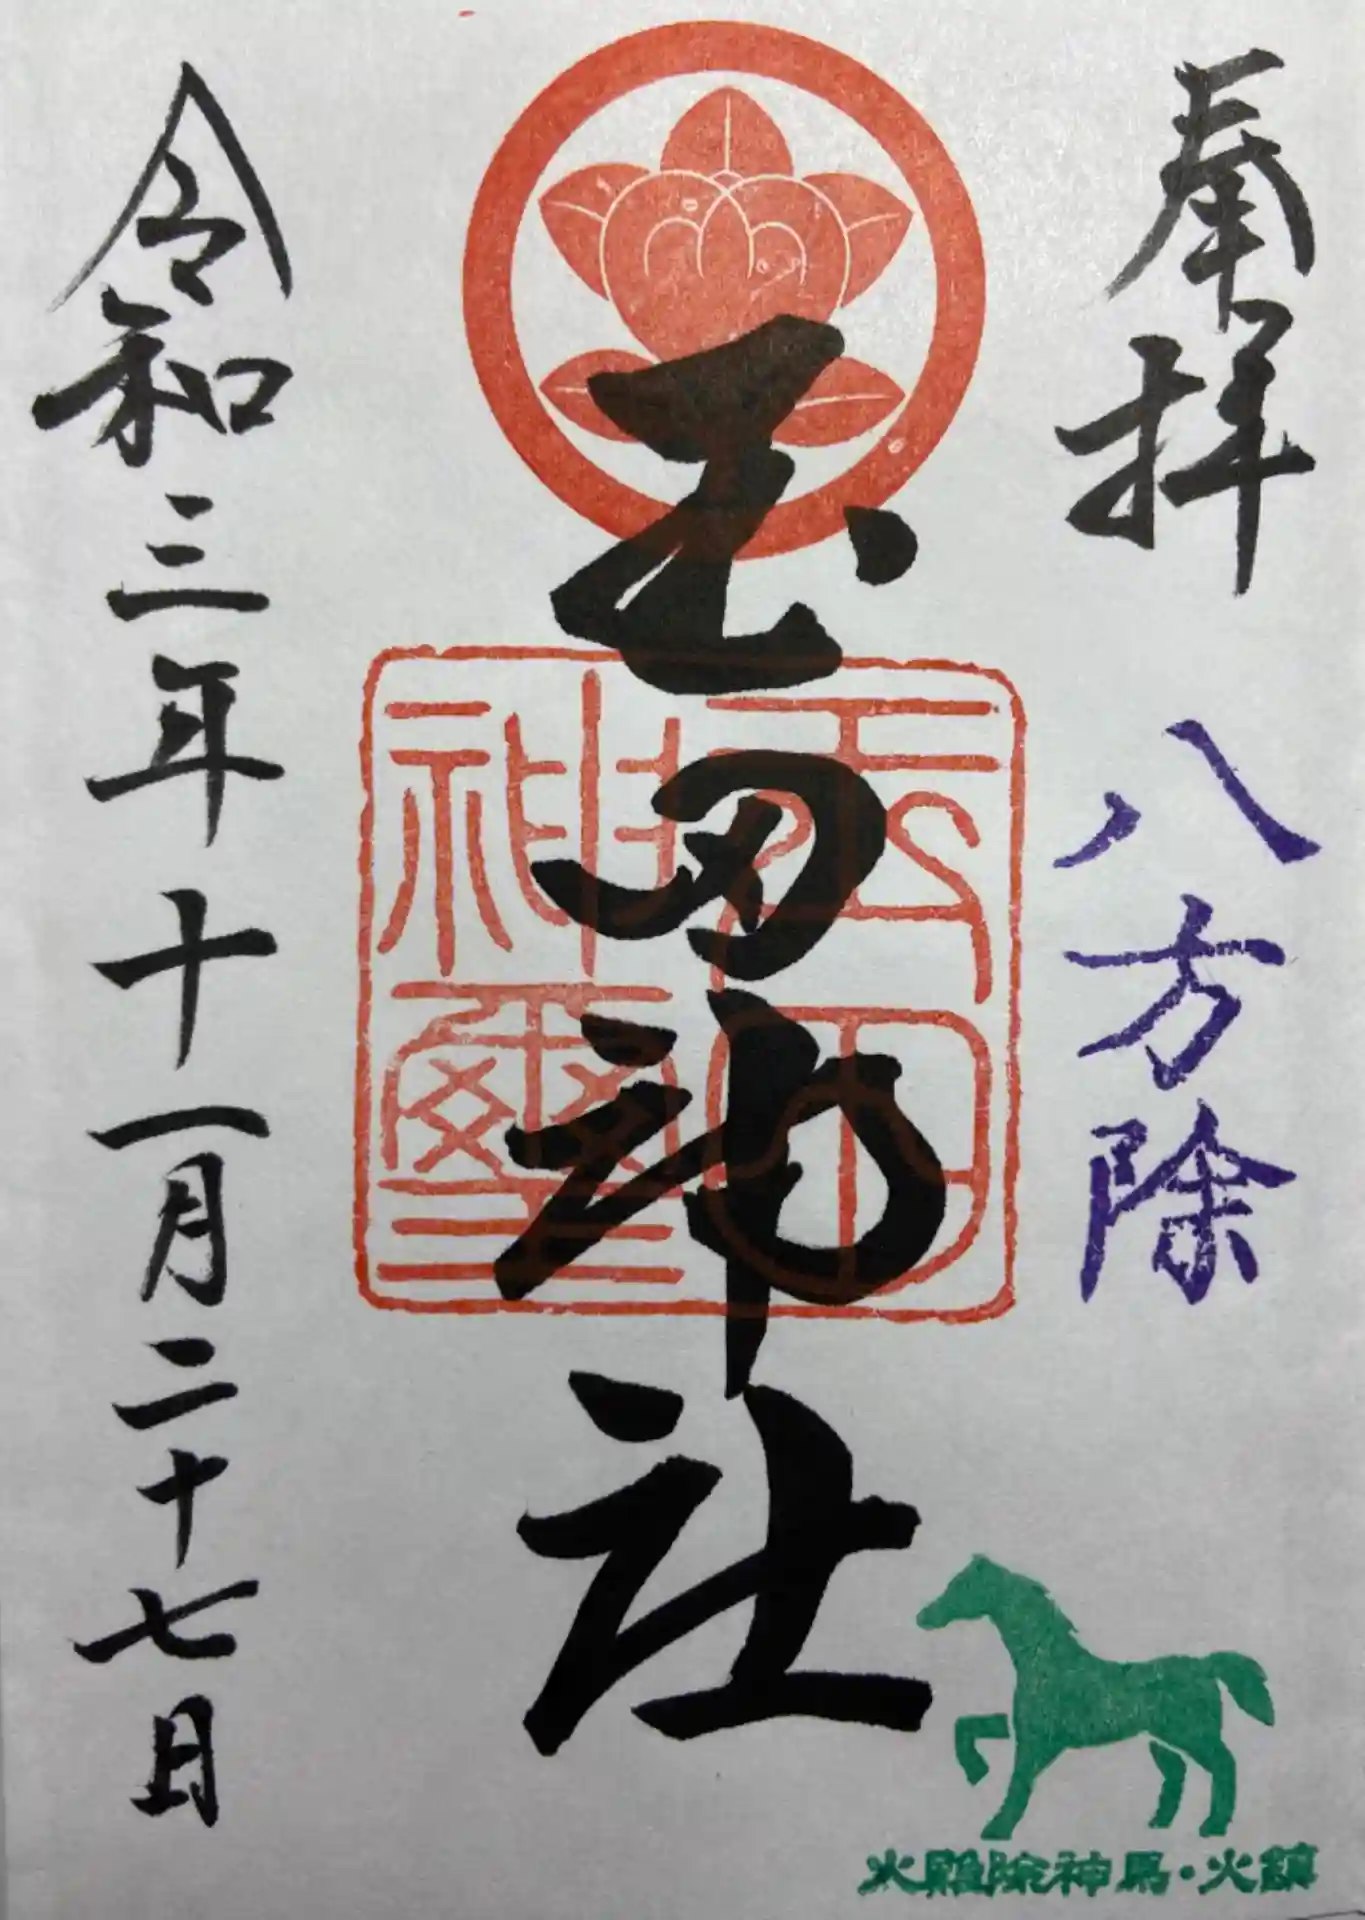 奉拝
八方除
玉田神社
玉田神璽
令和三年十一月二十七日
火難除神馬・火鎮